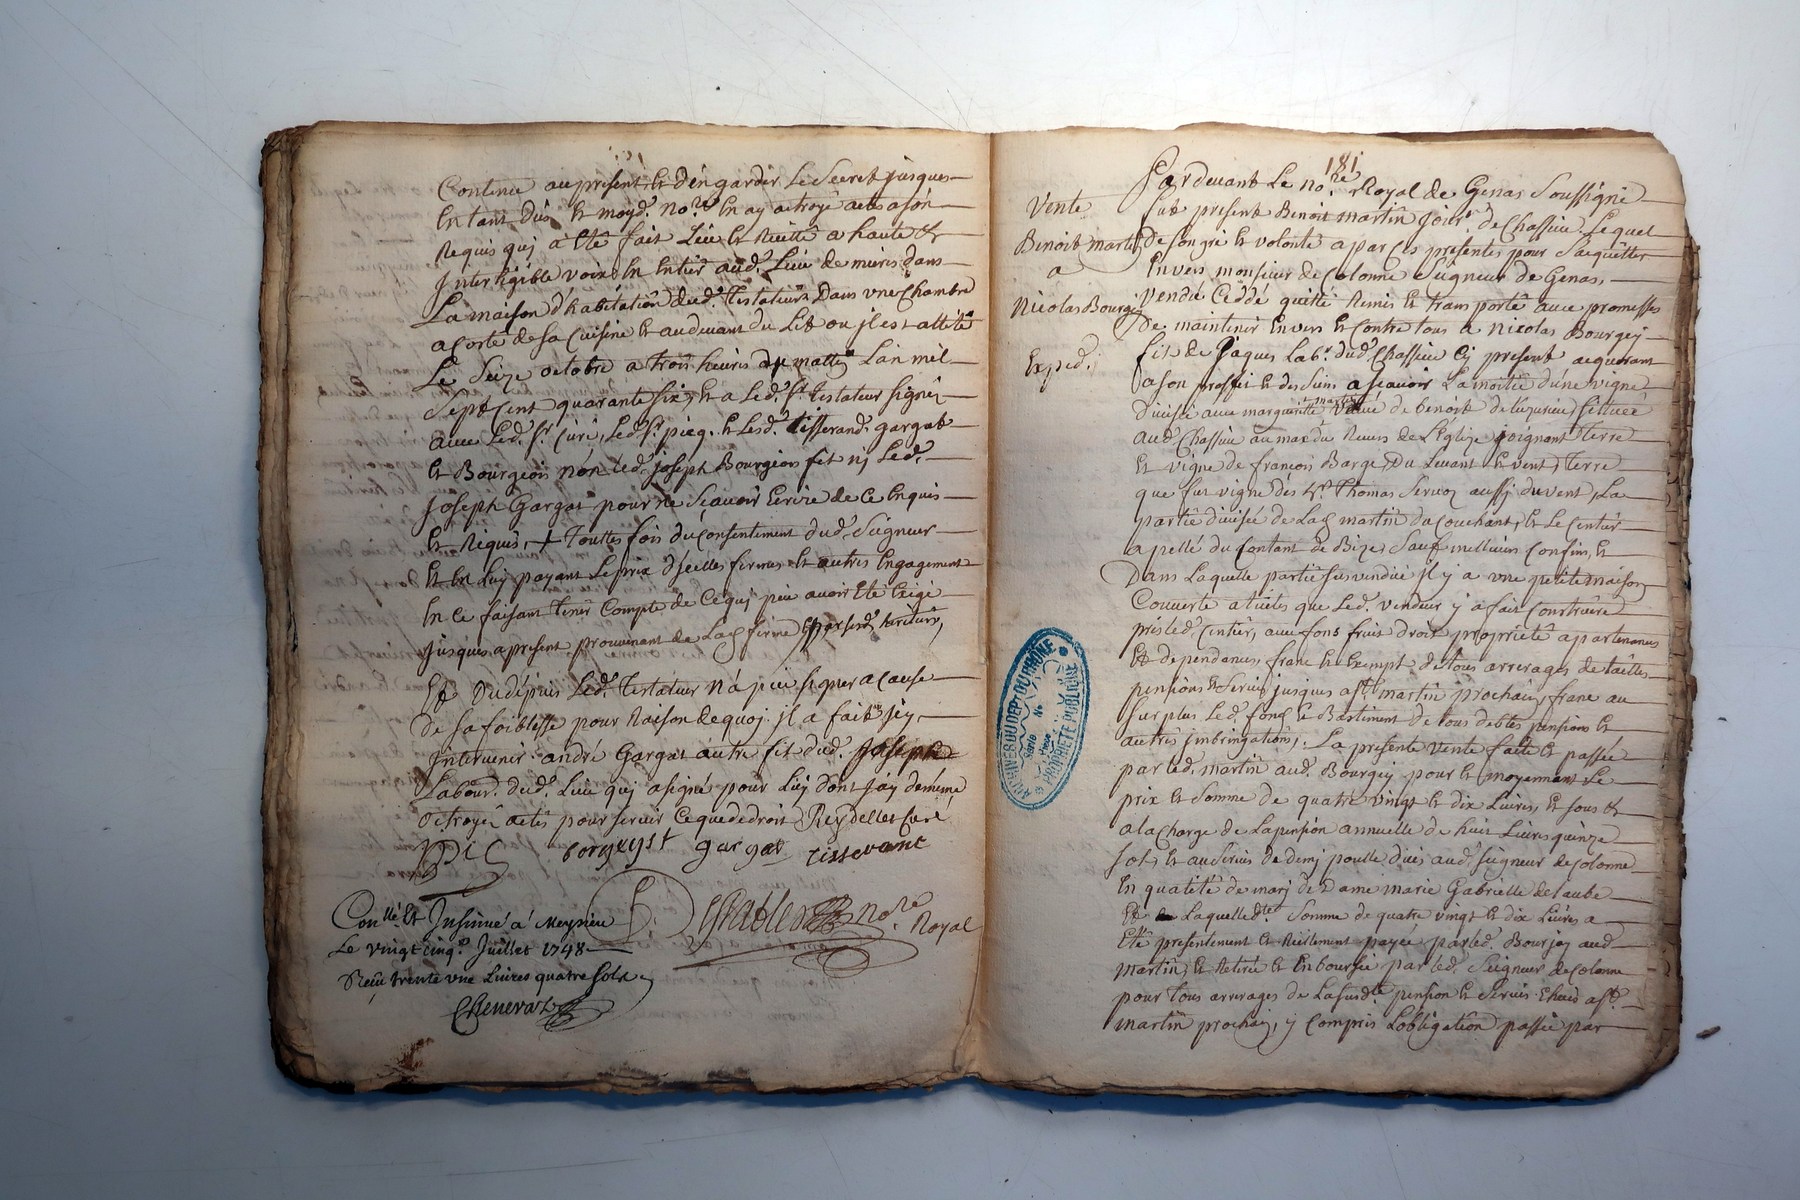 Contenu au present, et d'en garder Le Secret jusques
En tant Dus Et moyd.t no.re En ay octroyé acte a son
Requis quj à Eté fait Leu et Recitté a haute et
Interligible voix En Entier aud.t Lieu de mieris dans
La maison d'habitation dud.t Testateur Dans vne Chambre
a Costé de sa Cuisine Et au deuant du Lit ou jl est allité
Le Seize octobre a trois heures du mattin L'an mil
Sept Cent quarante Six, Et a Led.t S.r Testateur Signé
auec Led.t S.r Curé, Led S.r pieg. Et Lesd.t Tisserand gargat
Et Bourgeois non Led.t joseph Bourgeois fit nj Led.t
Joseph Gargat pour ne Scauoir Ecrire de Ce Enquis
Et Requis, + Touttes fois du Consentement dud.t Seigneur
Et En Luy payant Le prix d'jcelles fermes Et autres Engagement
En ce faisant Tenir Compte de Ce quj peu auoir Eté Exigé
jusques a present prouuenant de Lad ferme
Et Du depuis Led.t Testateur N'a peu signer a Cause
De sa foiblesse pour Raison de quoj jl a fait Jcy
Interuenir andré Gargat autre fit dud.t Joseph
Labour. dud.t Lieu quj a signé pour Luy dont j'ay de meme
octroyé actes pour seruir Ce que de droit Reydellet Curé
borgeyst gargat tisserant
no.re Royal
Con.llé Et Insinué à Meyzieu
Le vingt cinq.e Juillet 1748
Reçu trente une Liures quatre sols
Chenerat
181
Vente
Benoit martin
a
Nicolas Bourgey
Exped.
Pardeuant Le no.re Royal de Genas Soussigné
fut present Benoit martin jour.r de Chassieu Lequel
De son gré Et volonté a par Ces presentes pour S'acquitter
Enuers monsieur de Colonne Seigneur de Genas,
Vendu Ceddé quitté Remis Et transporté auec promesses
De maintenir Enuers Et Contre tous a Nicolas Bourgey
fit de Jaques Lab.r dud.t Chassieu Cy present acquerant
a son proffit Et des Siens a Scauoir La moitié d'une vigne
Diuisée auec margueritte martin Veuue de benoit de Luzurieu, Sittuée
aud.t Chassieu au mas du Reuers de L'Eglize joignant Terre
Et vigne de françois Barge, Du Leuant Et vent, Terre
que fut vigne des h.rs Thomas Seruoz aussj du vent, La
partie diuisée de Lad martin du Couchant, Et Le Centier
apellé du Contant de Bize, Sauf meilleurs Confins, Et
Dans Laquelle partie sus vendue jl y a vne petite maison
Couuerte a tuiles que Led.t vendeur y a fait Construire
prés Led.t Centier, auec fons fruit droit propriété apartenances
Et dependances franc Et Exempt de tous arrerages de tailles
pensions Et Seruis jusques a S.t martin prochain, franc au
Surplus Led.t fond Et Bastiment De tous debtes pensions Et
autres jmbringations, La presente vente faite Et passée
par Led.t martin aud.t Bourgey pour Et moyennant Le
prix Et Somme de quatre vingt Et dix Liures, Et sous Et
a La Charge de La pension annuelle de huit Liures quinze
Sols, Et au Seruis de demj poulle dues aud.t Seigneur de Colonne
En qualité de marj de Dame marie Gabrielle de Laube
Et Laquelle d.te Somme de quatre vingt Et dix Liures a
Eté presentement Et Réellement payée par Led.t Bourjey aud.
martin, Et Retirée Et Emboursée par Led.t Seigneur de Colonne
pour tous arrerages de La susd.te pension Et Seruis Echeus a S.t
martin prochain, y Compris L'obligation passée par
ARCHIVES DU DEPT DU RHÔNE
Série
No
Pièce
PROPRIÉTÉ PUBLIQUE